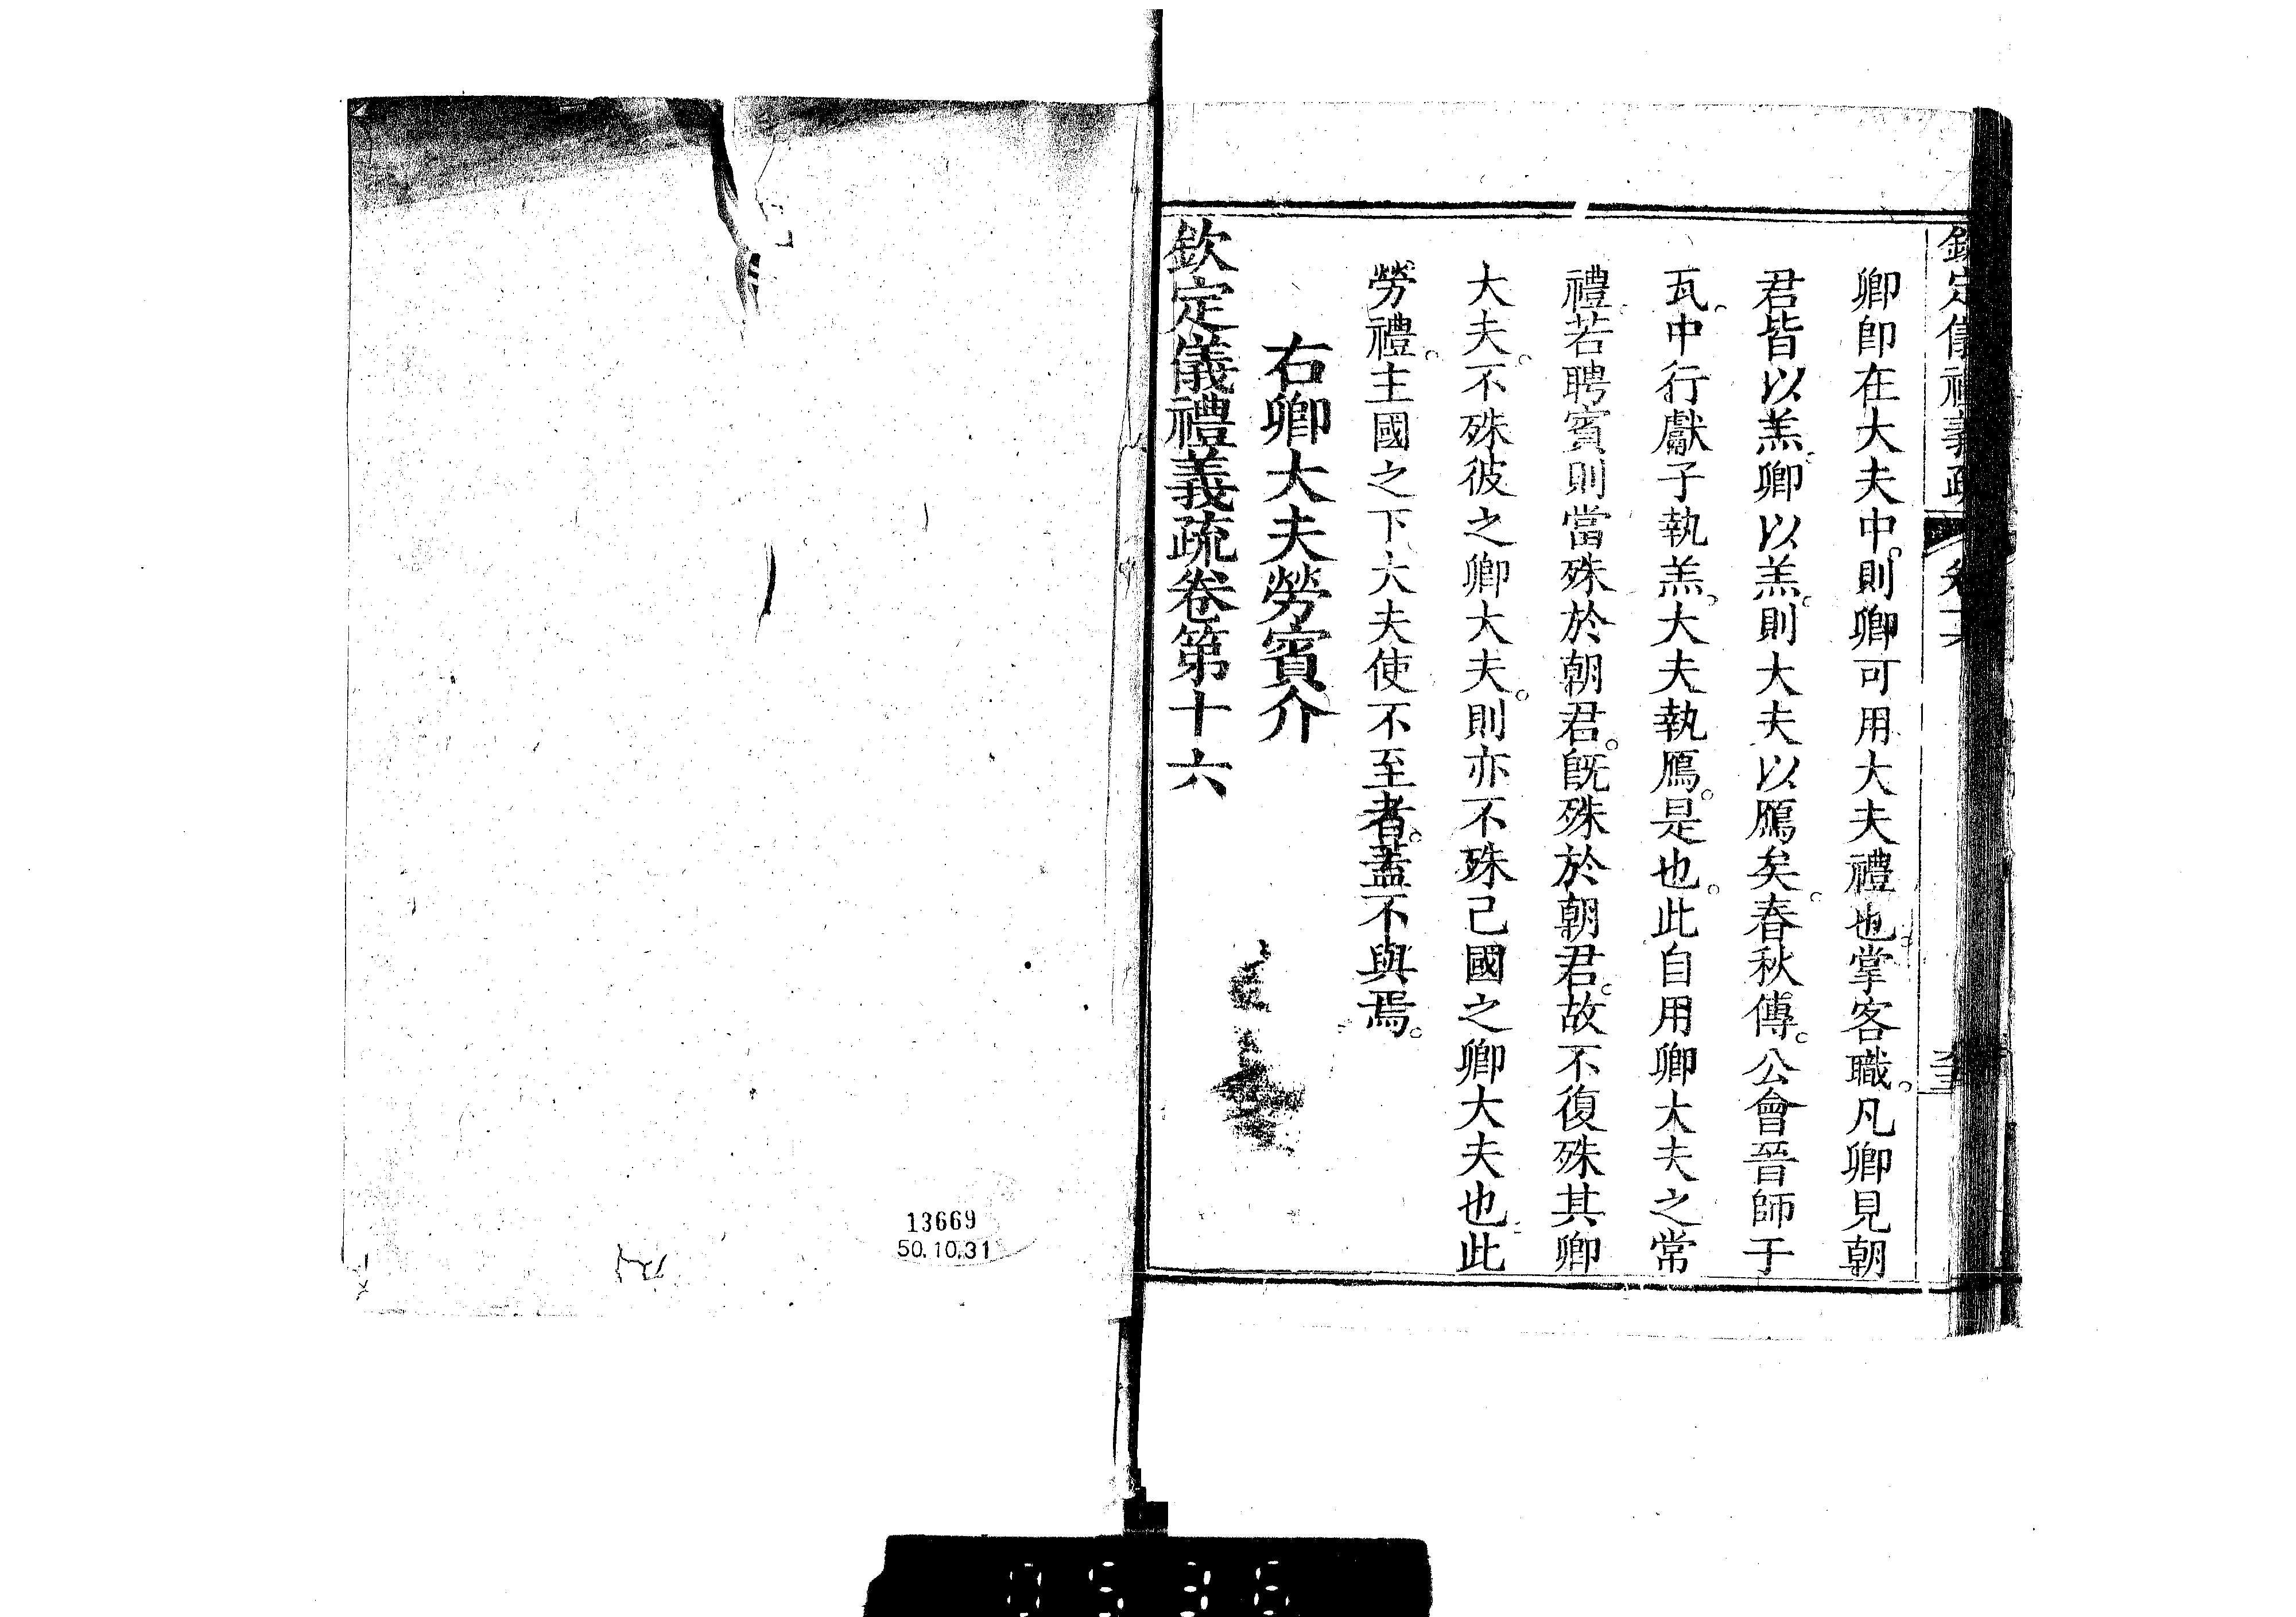 欽定儀禮義疏 卷十六
卿即在大夫中則卿可用大夫禮也掌客職凡卿見朝
君皆以羔卿以羔則大夫以鴈矣春秋傳公會晉師于
瓦中行獻子執羔大夫執鴈是也此自用卿大夫之常
禮若聘賓則當殊於朝君既殊於朝君故不復殊其卿
大夫不殊彼之卿大夫則亦不殊己國之卿大夫也此
勞禮主國之下大夫使不至者蓋不與焉
右卿大夫勞賓介
欽定儀禮義疏卷第十六
13669
50.10.31